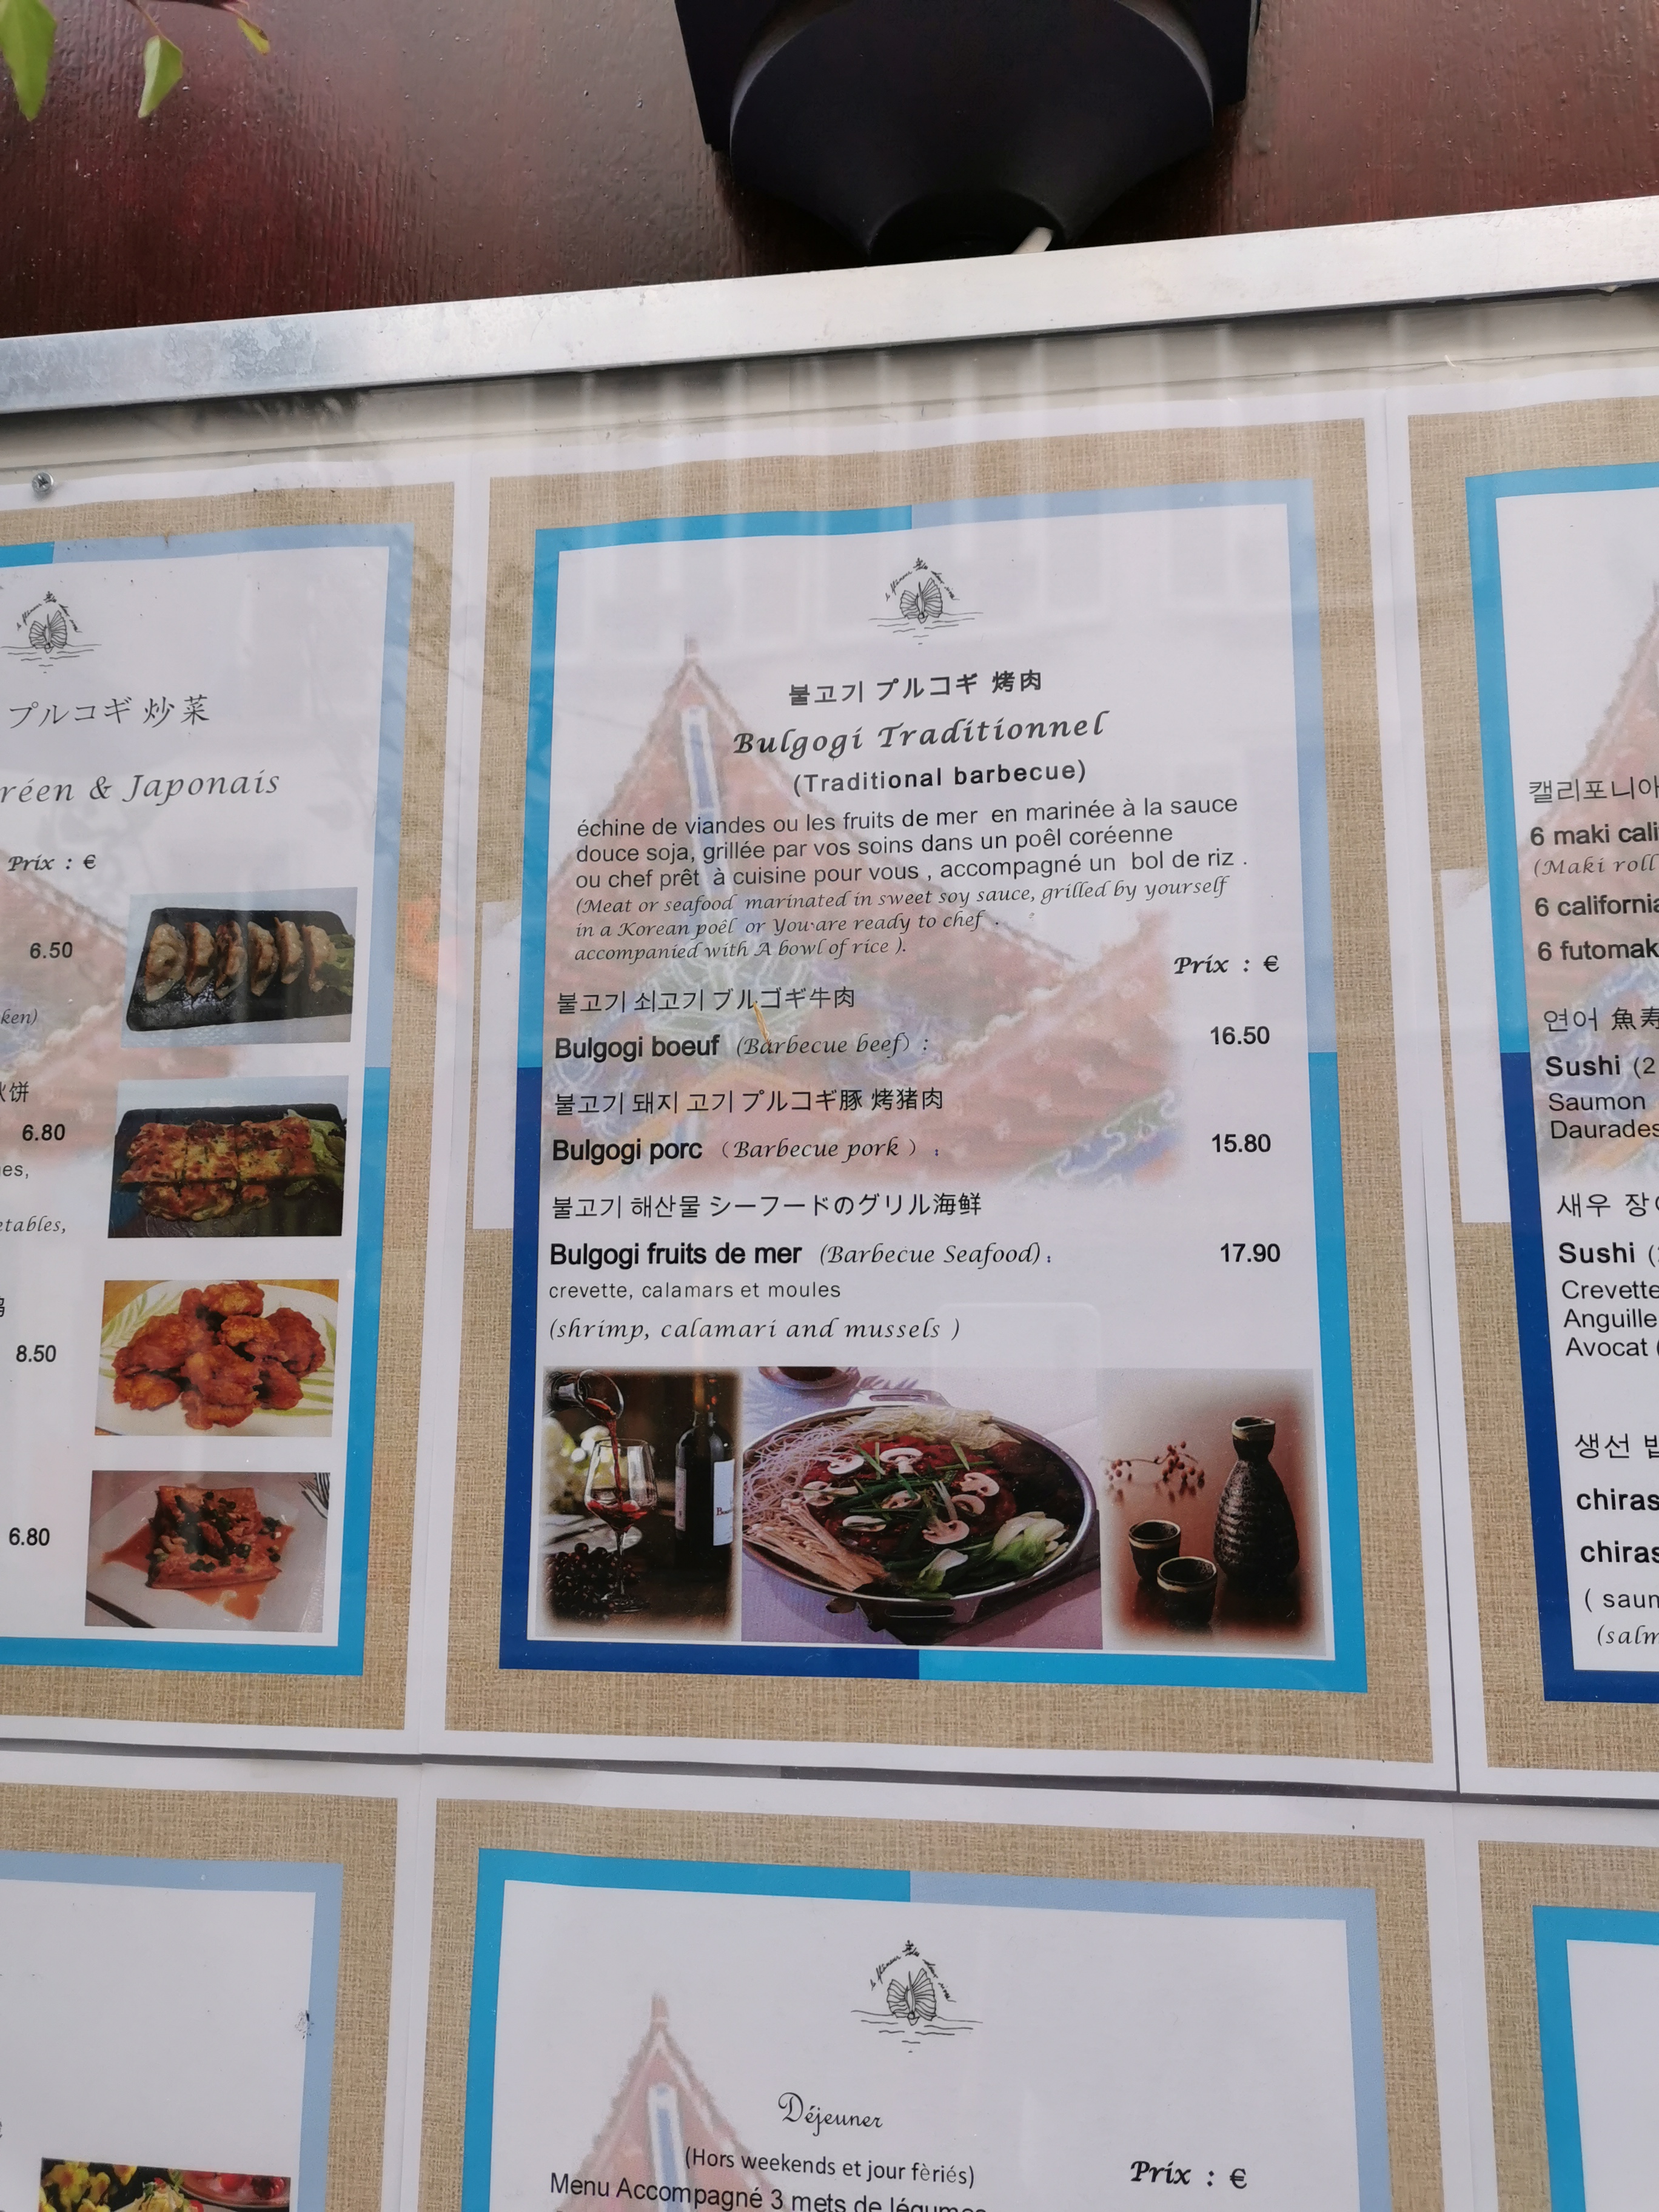 プルコギ 炒菜
réen & Japonais
Prix : €
6.50
ken)
饼
6.80
es,
etables,
8.50
6.80
불고기 プルコギ 烤肉
Bulgogi Traditionnel
(Traditional barbecue)
échine de viandes ou les fruits de mer en marinée à la sauce
douce soja, grillée par vos soins dans un poêl coréenne
ou chef prêt à cuisine pour vous , accompagné un bol de riz .
(Meat or seafood marinated in sweet soy sauce, grilled by yourself
in a Korean poêl or You are ready to chef .
accompanied with A bowl of rice ).
Prix : €
불고기 쇠고기 ブルゴギ牛肉
Bulgogi boeuf (Barbecue beef) :
16.50
불고기 돼지 고기 プルコギ豚 烤猪肉
Bulgogi porc (Barbecue pork ) :
15.80
불고기 해산물 シーフードのグリル海鲜
Bulgogi fruits de mer (Barbecue Seafood) :
17.90
crevette, calamars et moules
(shrimp, calamari and mussels )
캘리포니아
6 maki cali
(Maki roll
6 california
6 futomak
연어 魚寿
Sushi (2
Saumon
Daurades
새우 장
Sushi (
Crevette
Anguille
Avocat (
생선
chiras
chiras
( saum
(salm
Déjeuner
(Hors weekends et jour fèriés)
Prix : €
Menu Accompagné 3 mets de légumes